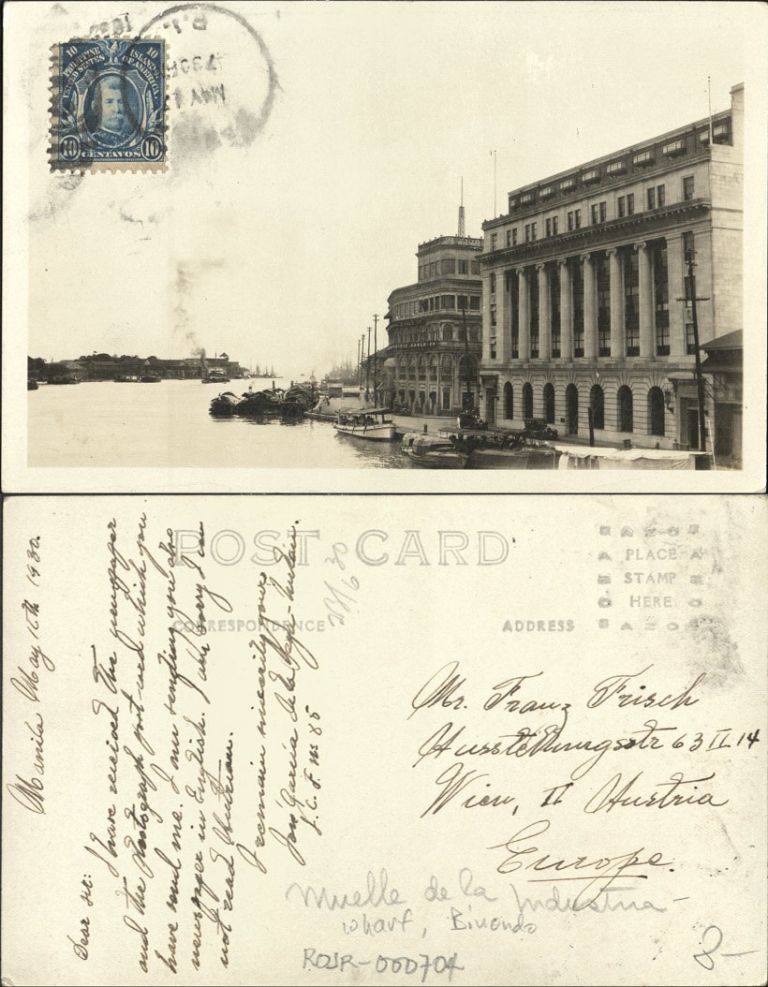 10 10
PHILIPPINE ISLANDS
UNITED STATES OF AMERICA
10 CENTAVOS 10
P.I.
730P
MAY
POST CARD
CORRESPONDENCE
ADDRESS
AZO
A PLACE A
STAMP
HERE
AZO
Manila May 16th 1930.
Dear sir:
I have received the newspaper
and the Photograph post-card which you
have send me. I am sending you also
newspaper in English. I am sorry I can
not read Austrian.
I remain sincerily yours
José Garcia de la
23/6 30
Mr. Franz Frisch
Ausstellungsstr 63 II 14
Wien, II Austria
Europe.
Muelle de la Industria -
wharf, Binondo
ROJR-000704
8-